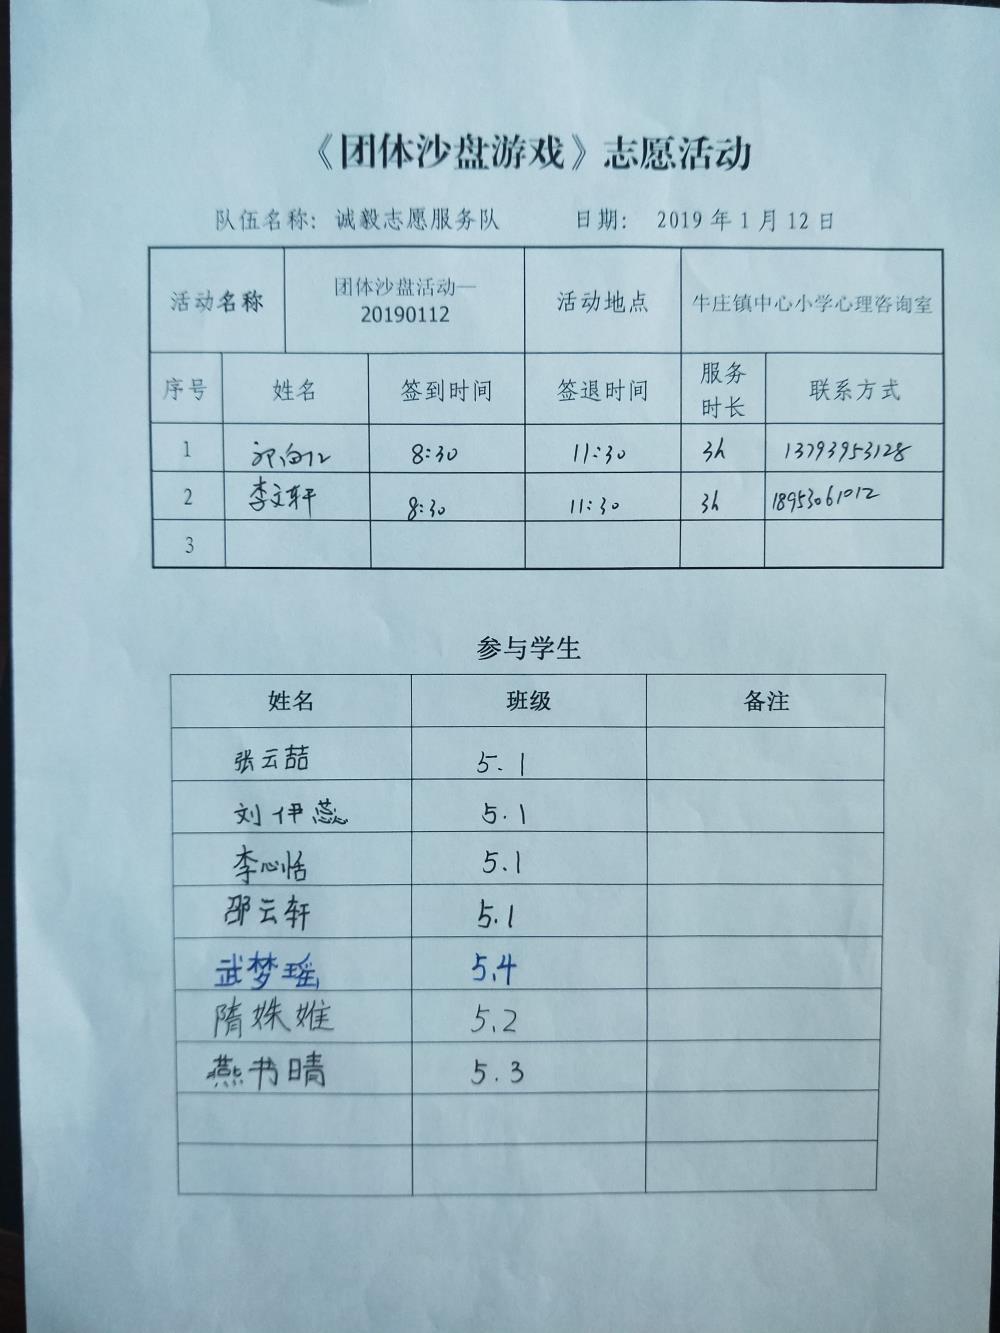 《团体沙盘游戏》志愿活动
队伍名称: 诚毅志愿服务队 日期: 2019 年 1 月 12 日
活动名称 团体沙盘活动—20190112 活动地点 牛庄镇中心小学心理咨询室
序号 姓名 签到时间 签退时间 服务时长 联系方式
1 8:30 11:30 3h 13793953128
2 李文轩 8:30 11:30 3h 18953061012
3
参与学生
姓名 班级 备注
张云喆 5.1
刘伊蕊 5.1
李心恬 5.1
邵云轩 5.1
武梦瑶 5.4
隋姝 5.2
燕书晴 5.3